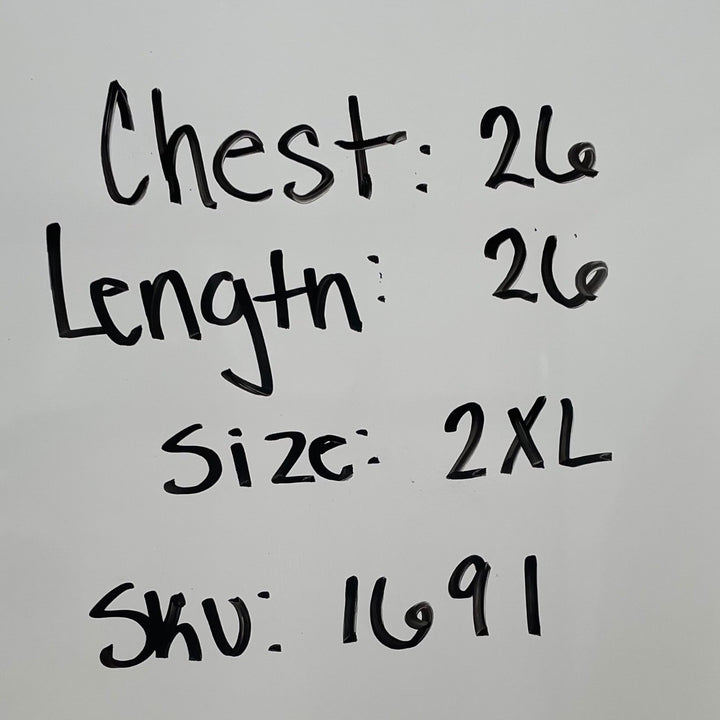 Chest: 26
Length: 26
Size: 2XL
SKU: 1691